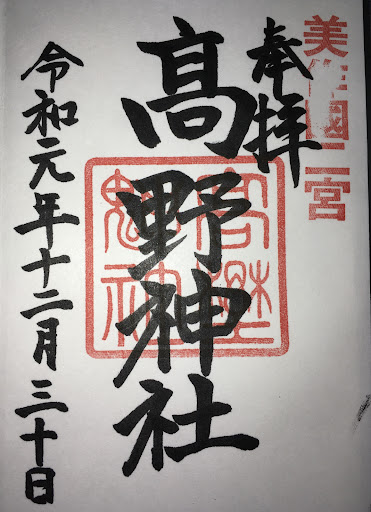 美作國二宮
奉拝
髙野神社
令和元年十二月三十日